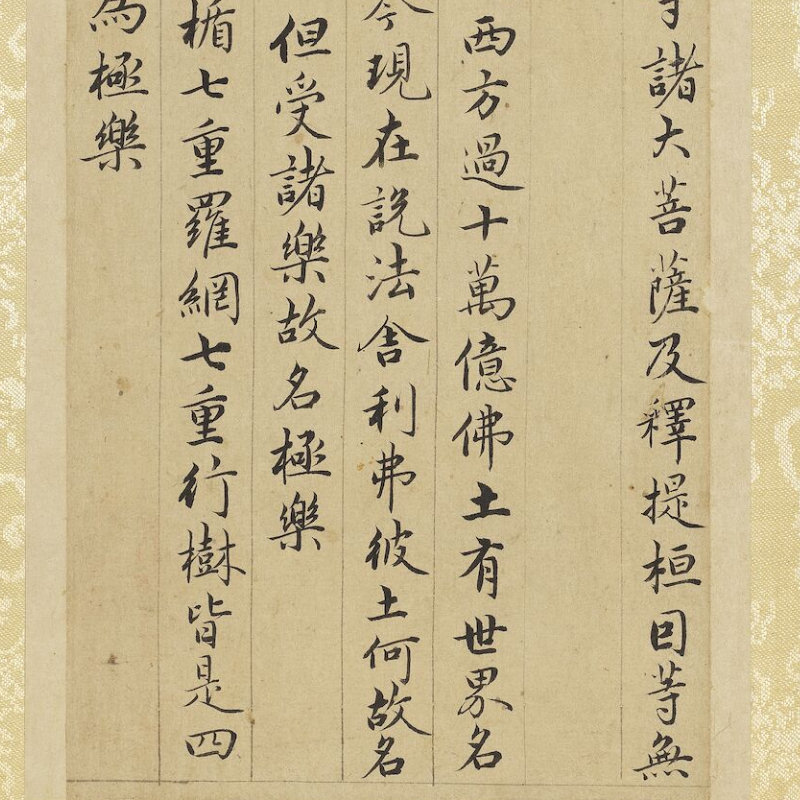 諸大菩薩及釋提桓因等無
西方過十萬億佛土有世界名
今現在説法舍利弗彼土何故名
但受諸樂故名極樂
楯七重羅網七重行樹皆是四
為極樂